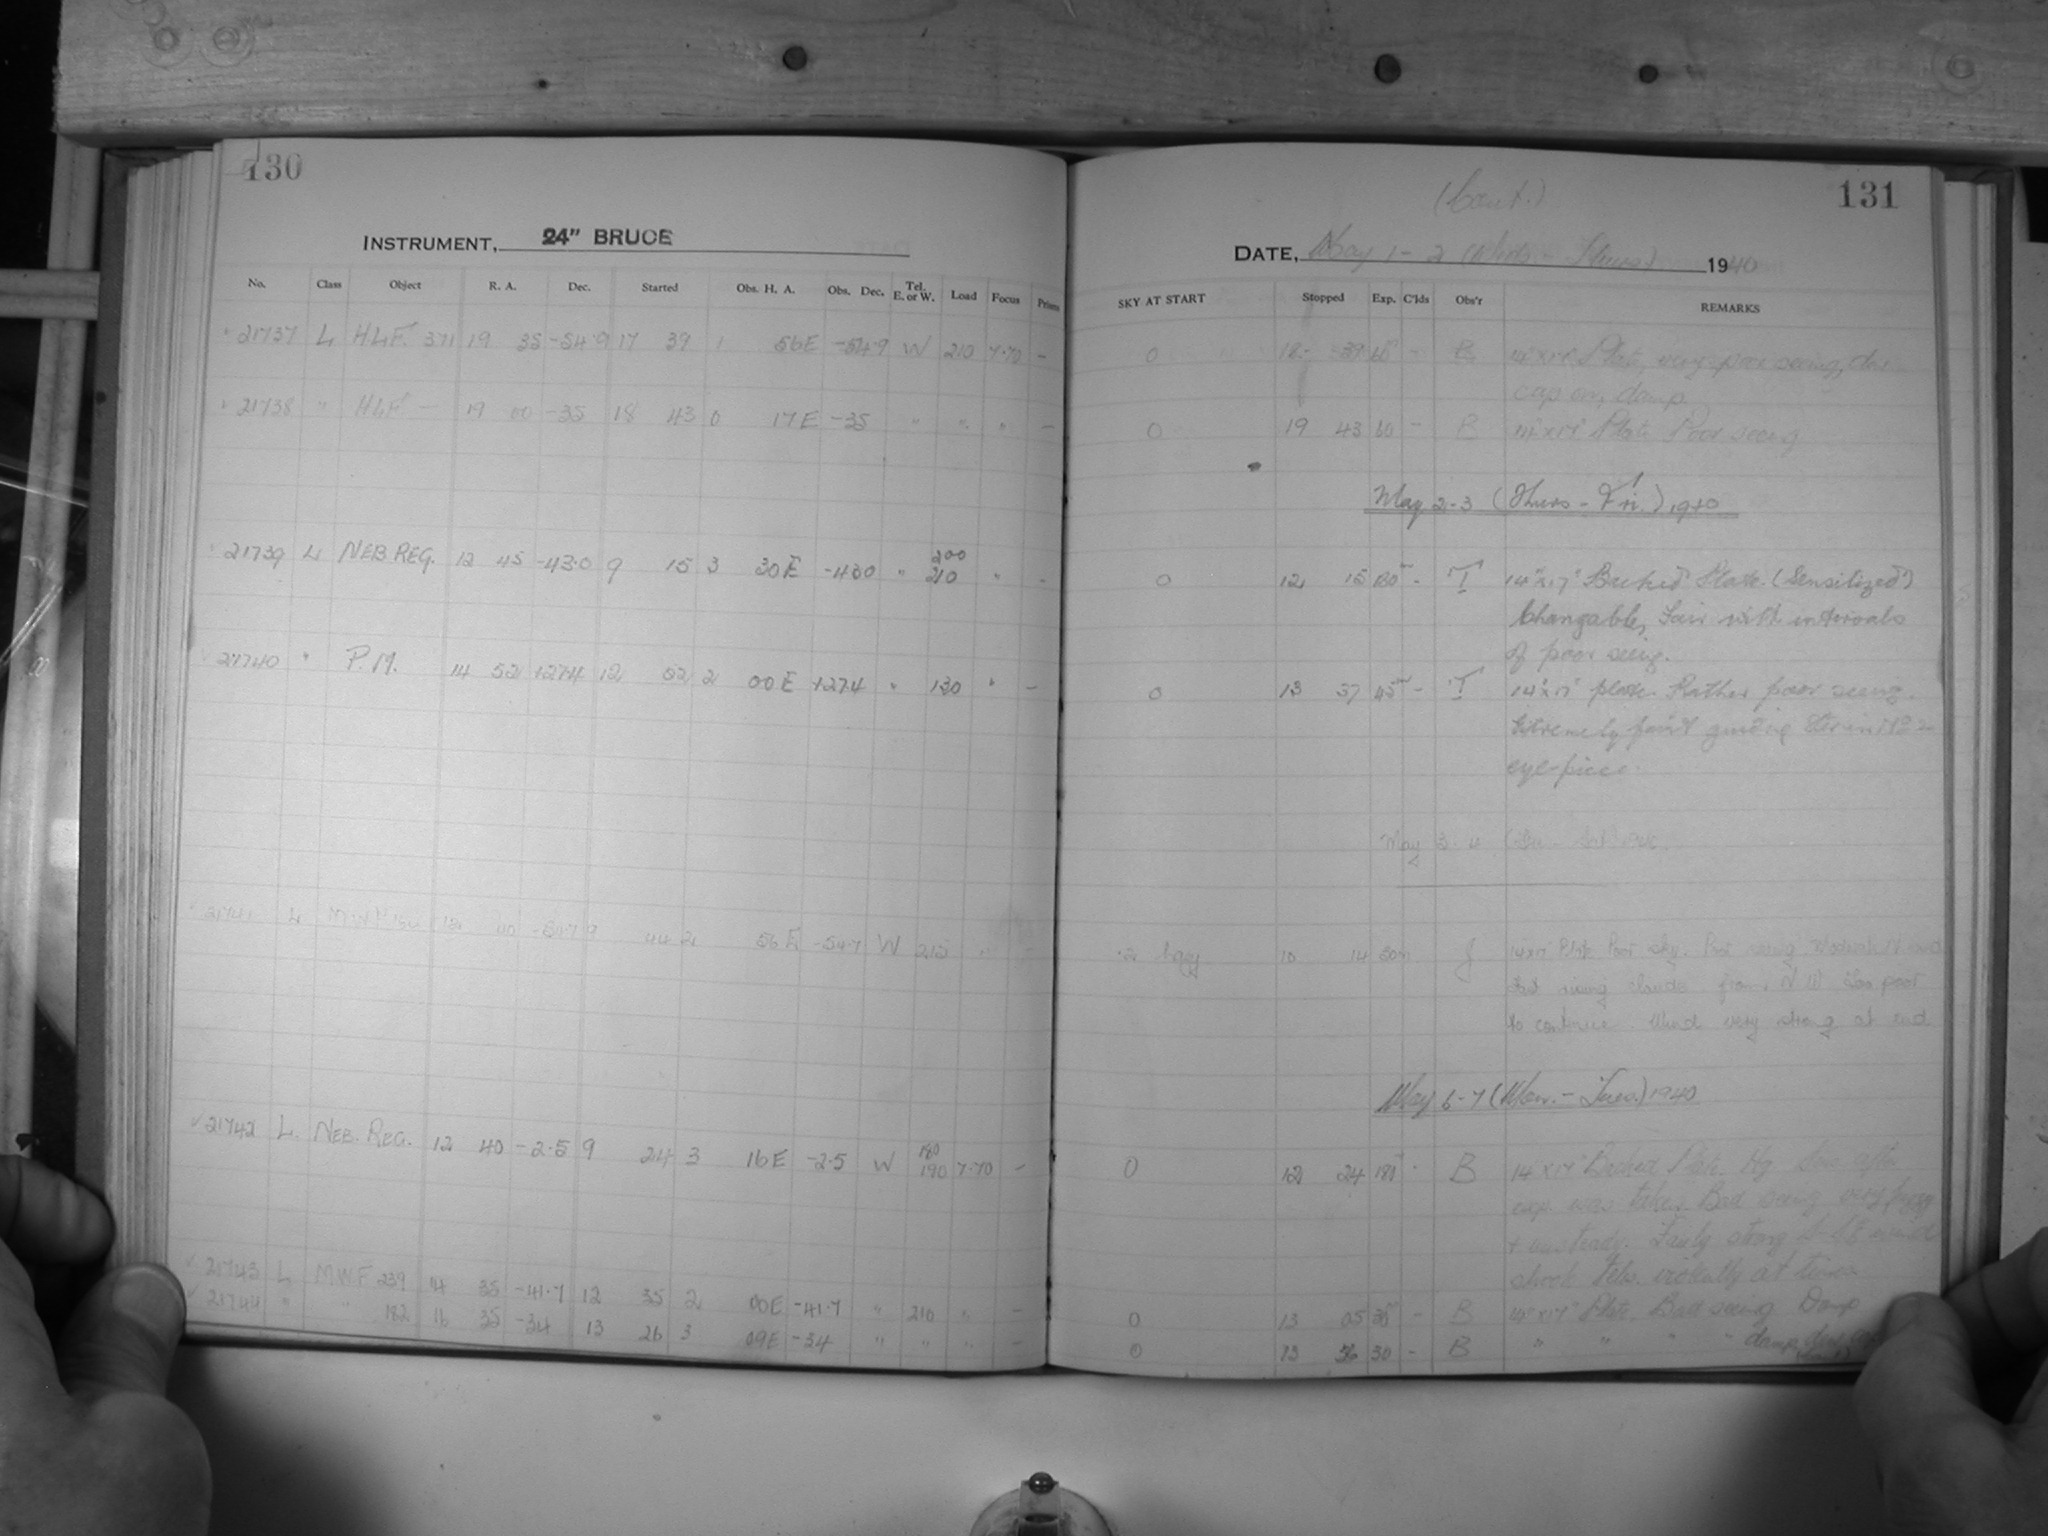 130
INSTRUMENT, 24" BRUCE
No. Class Object R. A. Dec. Started Obs. H. A. Obs. Dec. Tel. E. or W. Load Focus Prism
21737 L HLF. 371 19 35 -54.9 17 39 1 56E -54.9 W 210 7.70 -
21738 " HLF - 19 00 -35 18 43 0 17E -35 " " " -
21739 L NEB. REG. 12 45 -43.0 9 15 3 30E -43.0 " 200 210 " -
21740 " P.M. 14 52 +27.4 12 52 2 00E +27.4 " 130 " -
21741 L 9 44 2 56E -54.7 W "
21742 L. NEB. REG. 12 40 -2.5 9 24 3 16E -2.5 W 180 190 7.70 -
21743 L MWF 239 14 35 -41.7 12 35 2 00E -41.7 " 210 " -
21744 " " 182 16 35 -34 13 26 3 09E -34 " " " -
(Cont.)
131
DATE, May 1-2 (Weds - Thurs) 1940
SKY AT START Stopped Exp. C'lds Obs'r REMARKS
0 18 39 60 - B 14"x17" Plate, very poor seeing, dew
cap on, damp
0 19 43 60 - B 14"x17" Plate Poor seeing
May 2-3 (Thurs - Fri.) 1940
0 12 15 180m - T 14"x17" Backed Plate. (Sensitized)
Changable, Fair with intervals
of poor seeing.
0 13 37 45m - T 14"x17" plate. Rather poor seeing.
Extremely faint guiding star in
eye-piece.
May 3-4 (Fri - Sat) 1940.
.2 hazy 10 14 30m J 14x17 Plate Poor sky. Poor seeing.
Fast rising clouds from N W Too poor
to continue. Wind very strong at end
May 6-7 (Mon. - Tues.) 1940
0 12 24 180m - B 14"x17" Backed Plate. after
exp. was taken. Bad seeing very
+ unsteady. Fairly strong wind
shook Tele. violently at times
0 13 05 30m - B 14"x17" Plate. Bad seeing Damp
0 13 56 30 - B " " " " damp,